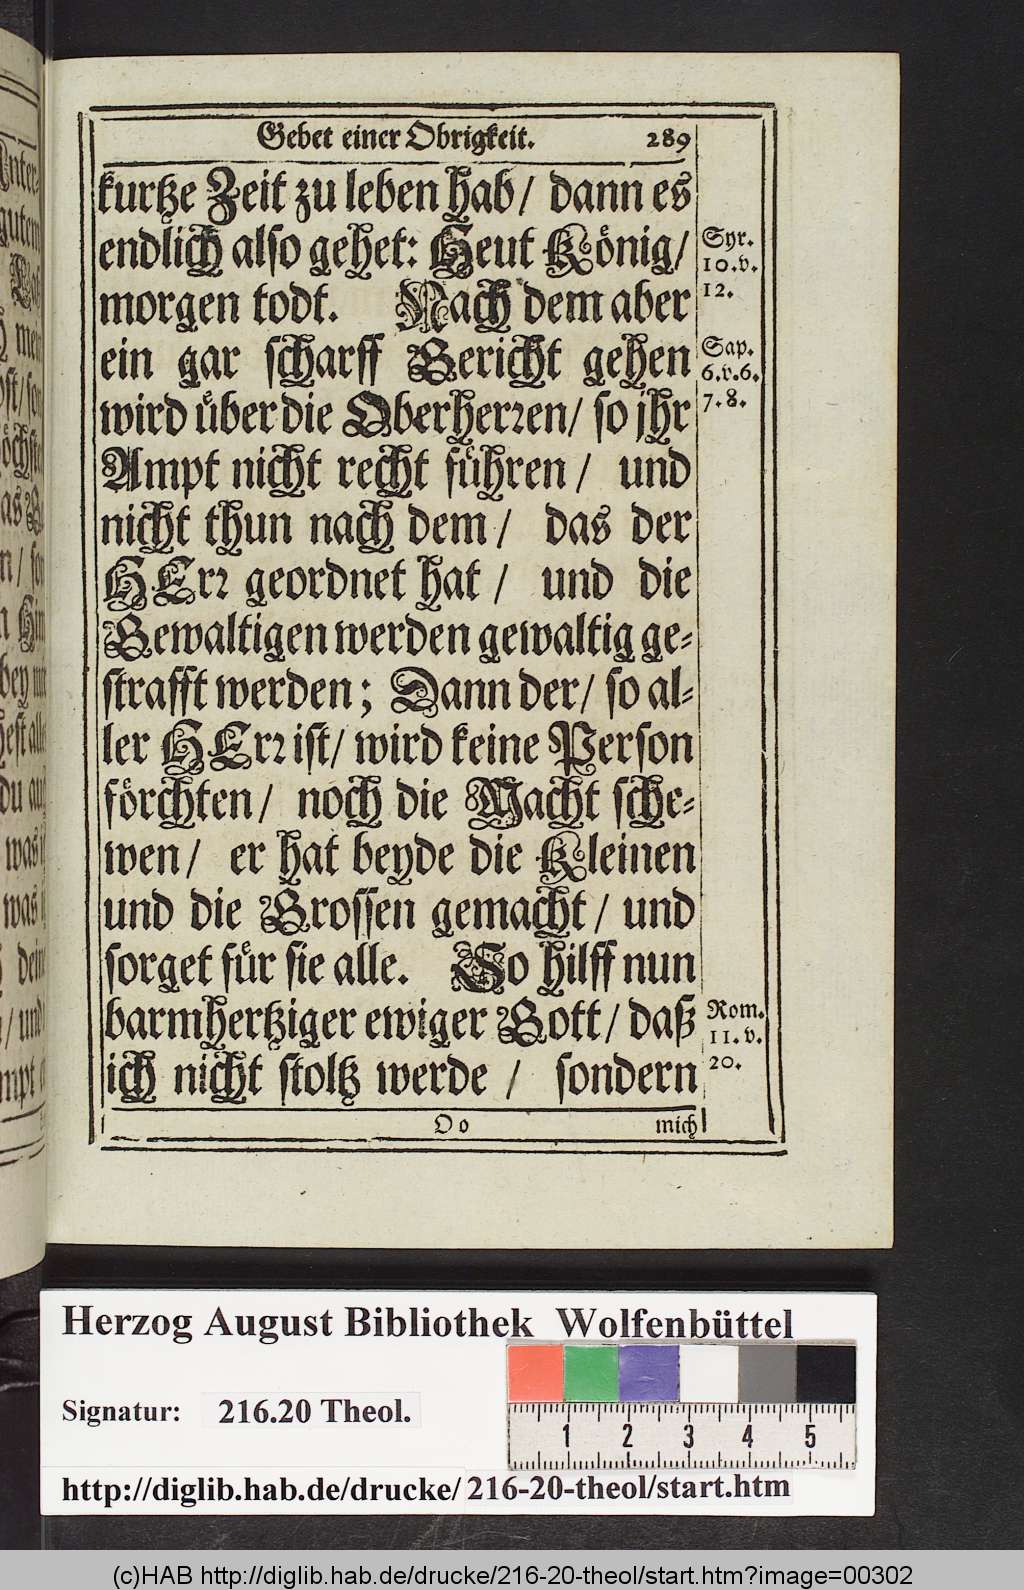 Gebet einer Obrigkeit. 289
kurtze Zeit zu leben hab / dann es
endlich also gehet: Heut König /
morgen todt. Nach dem aber
ein gar scharff Gericht gehen
wird uͤber die Oberherꝛen / so jhr
Ampt nicht recht fuͤhren / und
nicht thun nach dem / das der
HErꝛ geordnet hat / und die
Gewaltigen werden gewaltig ge-
strafft werden; Dann der / so al-
ler HErꝛ ist / wird keine Person
förchten / noch die Macht sche-
wen / er hat beyde die Kleinen
und die Grossen gemacht / und
sorget fuͤr sie alle. So hilff nun
barmhertziger ewiger Gott / daß
ich nicht stoltz werde / sondern
Oo mich
Syr.
10.v.
12.
Sap.
6.v.6.
7.8.
Rom.
11.v.
20.
Herzog August Bibliothek Wolfenbüttel
Signatur: 216.20 Theol.
1 2 3 4 5
http://diglib.hab.de/drucke/216-20-theol/start.htm
(c)HAB http://diglib.hab.de/drucke/216-20-theol/start.htm?image=00302